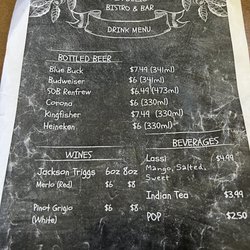 BISTRO & BAR
DRINK MENU
BOTTLED BEER
Blue Buck $7.49 (341ml)
Budweiser $6 (341ml)
SDB Renfrew $6.49 (473ml)
Corona $6 (330ml)
Kingfisher $7.49 (330ml)
Heineken $6 (330ml)
WINES
Jackson Triggs 6oz 8oz
Merlo (Red) $6 $8
Pinot Grigio $6 $8
(White)
BEVERAGES
Lassi $4.99
Mango, Salted,
Sweet
Indian Tea $3.99
POP $2.50